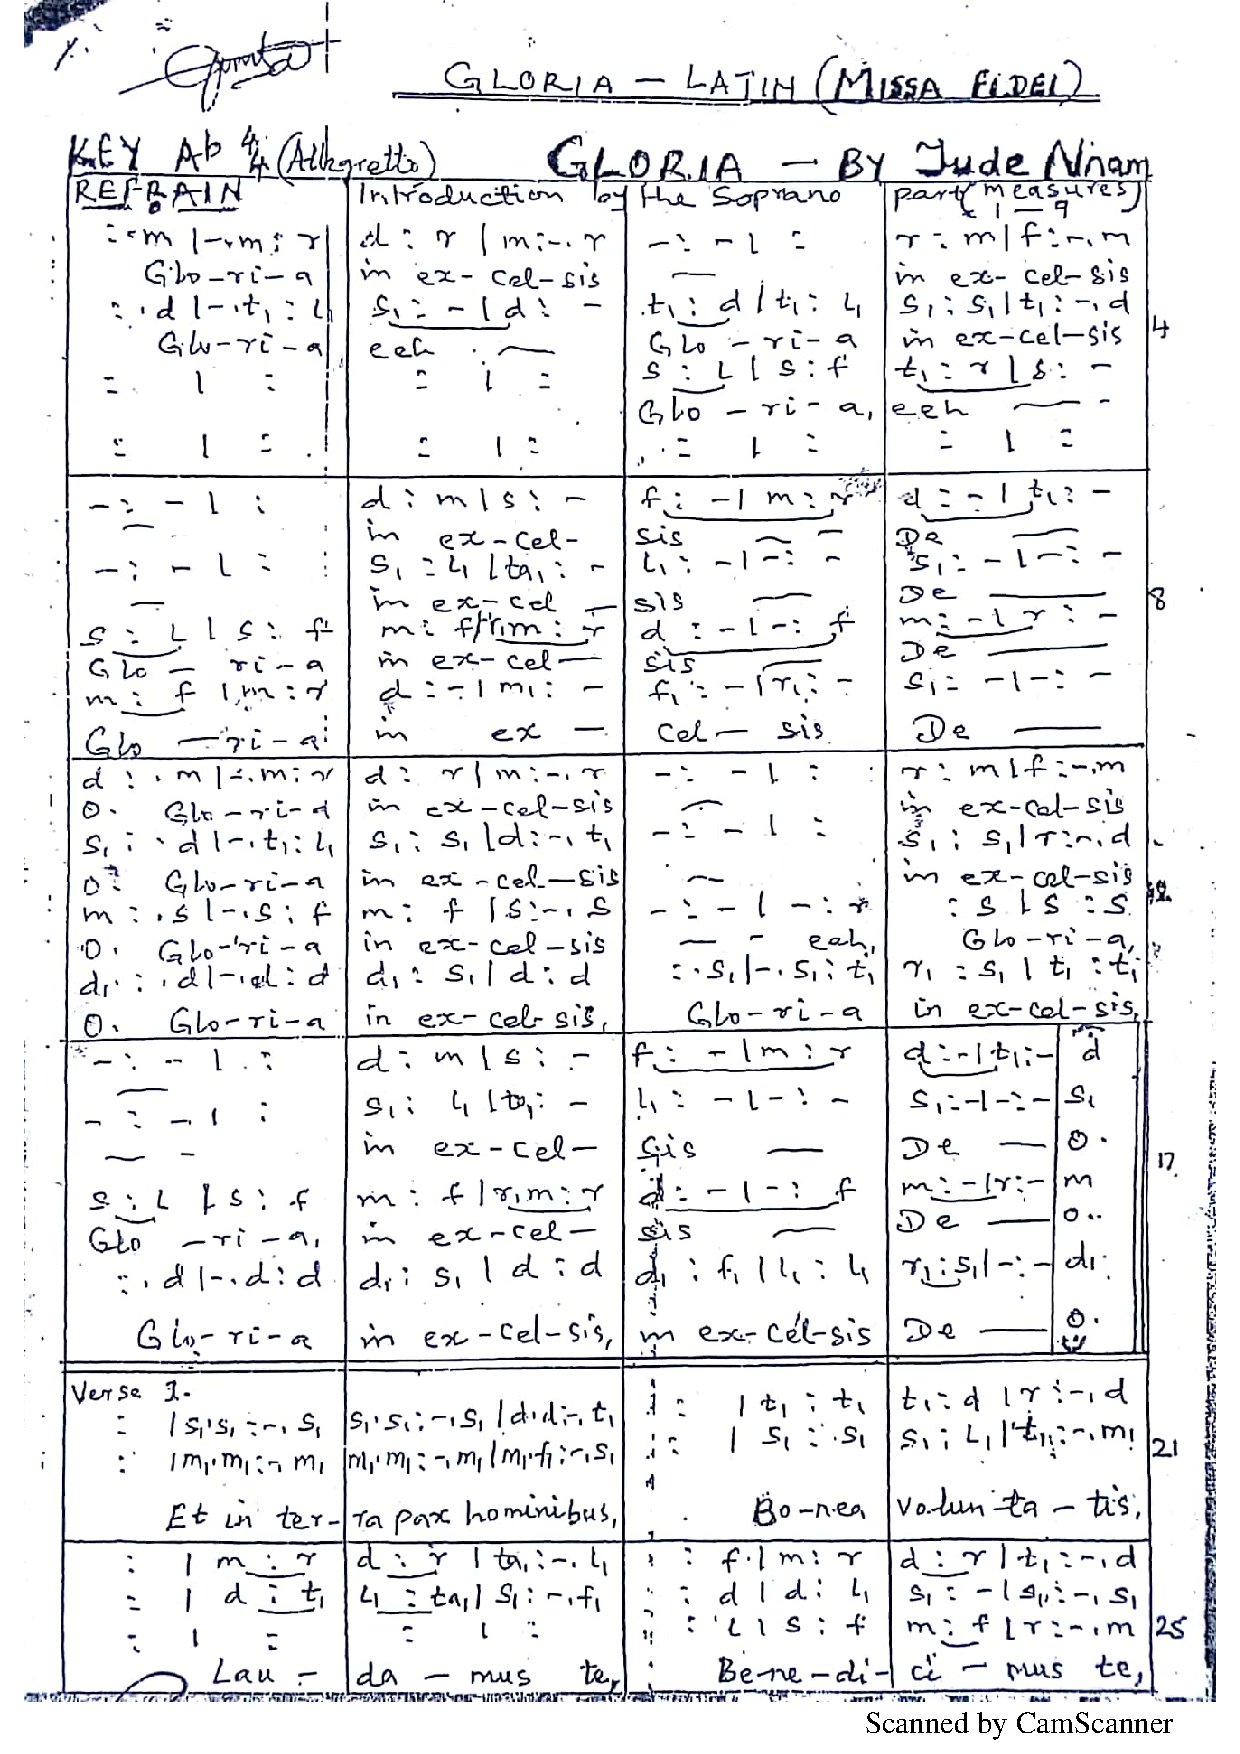 GLORIA — LATIN (MISSA FIDEI)
KEY Ab 4/4 (Allegretto) GLORIA — BY Jude Nnam
REFRAIN Introduction by the Soprano part (measures 1 — 9
: ·m |-·m : r d : r | m :-· r - : - | : r : m | f :-· m
Glo-ri-a in ex-cel-sis — in ex-cel-sis
: · d |-· t₁ : l₁ s₁ : - | d : - t₁ : d | t₁ : l₁ s₁ : s₁ | t₁ : -· d 4
Glo-ri-a eeh — Glo - ri - a in ex-cel-sis
: | : : | : s : l | s : f t₁ : r | s : -
Glo - ri - a, eeh —
: | : : | : : | : : | :
- : - | : d : m | s : - f : - | m : r d : - | t₁ : -
in ex-cel- sis — De —
- : - | : s₁ : l₁ | ta₁ : - l₁ : - | - : - s₁ : - | - : -
— in ex-cel — sis — De — 8
s : l | s : f m : f | r·m : r d : - | - : f m : - | r : -
Glo — ri-a in ex-cel — sis — De —
m : f | m : r d : - | m₁ : - f₁ : - | r₁ : - s₁ : - | - : -
Glo — ri-a in ex — cel — sis De —
d : · m |-· m : r d : r | m :-· r - : - | : r : m | f :-· m
O. Glo-ri-a in ex-cel-sis — in ex-cel-sis
s₁ : · d |-· t₁ : l₁ s₁ : s₁ | d :-· t₁ - : - | : s₁ : s₁ | r :-· d
O. Glo-ri-a in ex-cel-sis — in ex-cel-sis
m : · s |-· s : f m : f | s :-· s - : - | - : r : s | s : s 12
O. Glo-ri-a in ex-cel-sis — eeh, Glo-ri-a,
d₁ : · d |-· d : d d₁ : s₁ | d : d : · s₁ |-· s₁ : t₁ r₁ : s₁ | t₁ : t₁
O. Glo-ri-a in ex-cel-sis, Glo-ri-a in ex-cel-sis,
- : - | : d : m | s : - f : - | m : r d : - | t₁ : - d
- : - | : s₁ : l₁ | ta₁ : - l₁ : - | - : - s₁ : - | - : - s₁
— in ex-cel — sis — De — O. 17
s : l | s : f m : f | r·m : r d : - | - : f m : - | r : - m
Glo — ri-a, in ex-cel — sis — De — O.
: · d |-· d : d d₁ : s₁ | d : d d₁ : f₁ | l₁ : l₁ r₁ : s₁ | - : - d₁
Glo-ri-a in ex-cel-sis, in ex-cel-sis De — O.
Verse 1.
: | s₁·s₁ :-· s₁ s₁·s₁ :-· s₁ | d·d :-· t₁ : | t₁ : t₁ t₁ : d | r :-· d
: | m₁·m₁ :-· m₁ m₁·m₁ :-· m₁ | m₁·f₁ :-· s₁ : | s₁ : s₁ s₁ : l₁ | t₁ :-· m₁ 21
Et in ter-ra pax hominibus, Bo-nea volun-ta-tis,
: | m : r d : r | ta₁ :-· l₁ : f | m : r d : r | t₁ :-· d
: | d : t₁ l₁ : ta₁ | s₁ :-· f₁ : d | d : l₁ s₁ : - | s₁ :-· s₁
: | : : | : : l | s : f m : f | r :-· m 25
Lau - da - mus te, Be-ne-di- ci - mus te,
Scanned by CamScanner